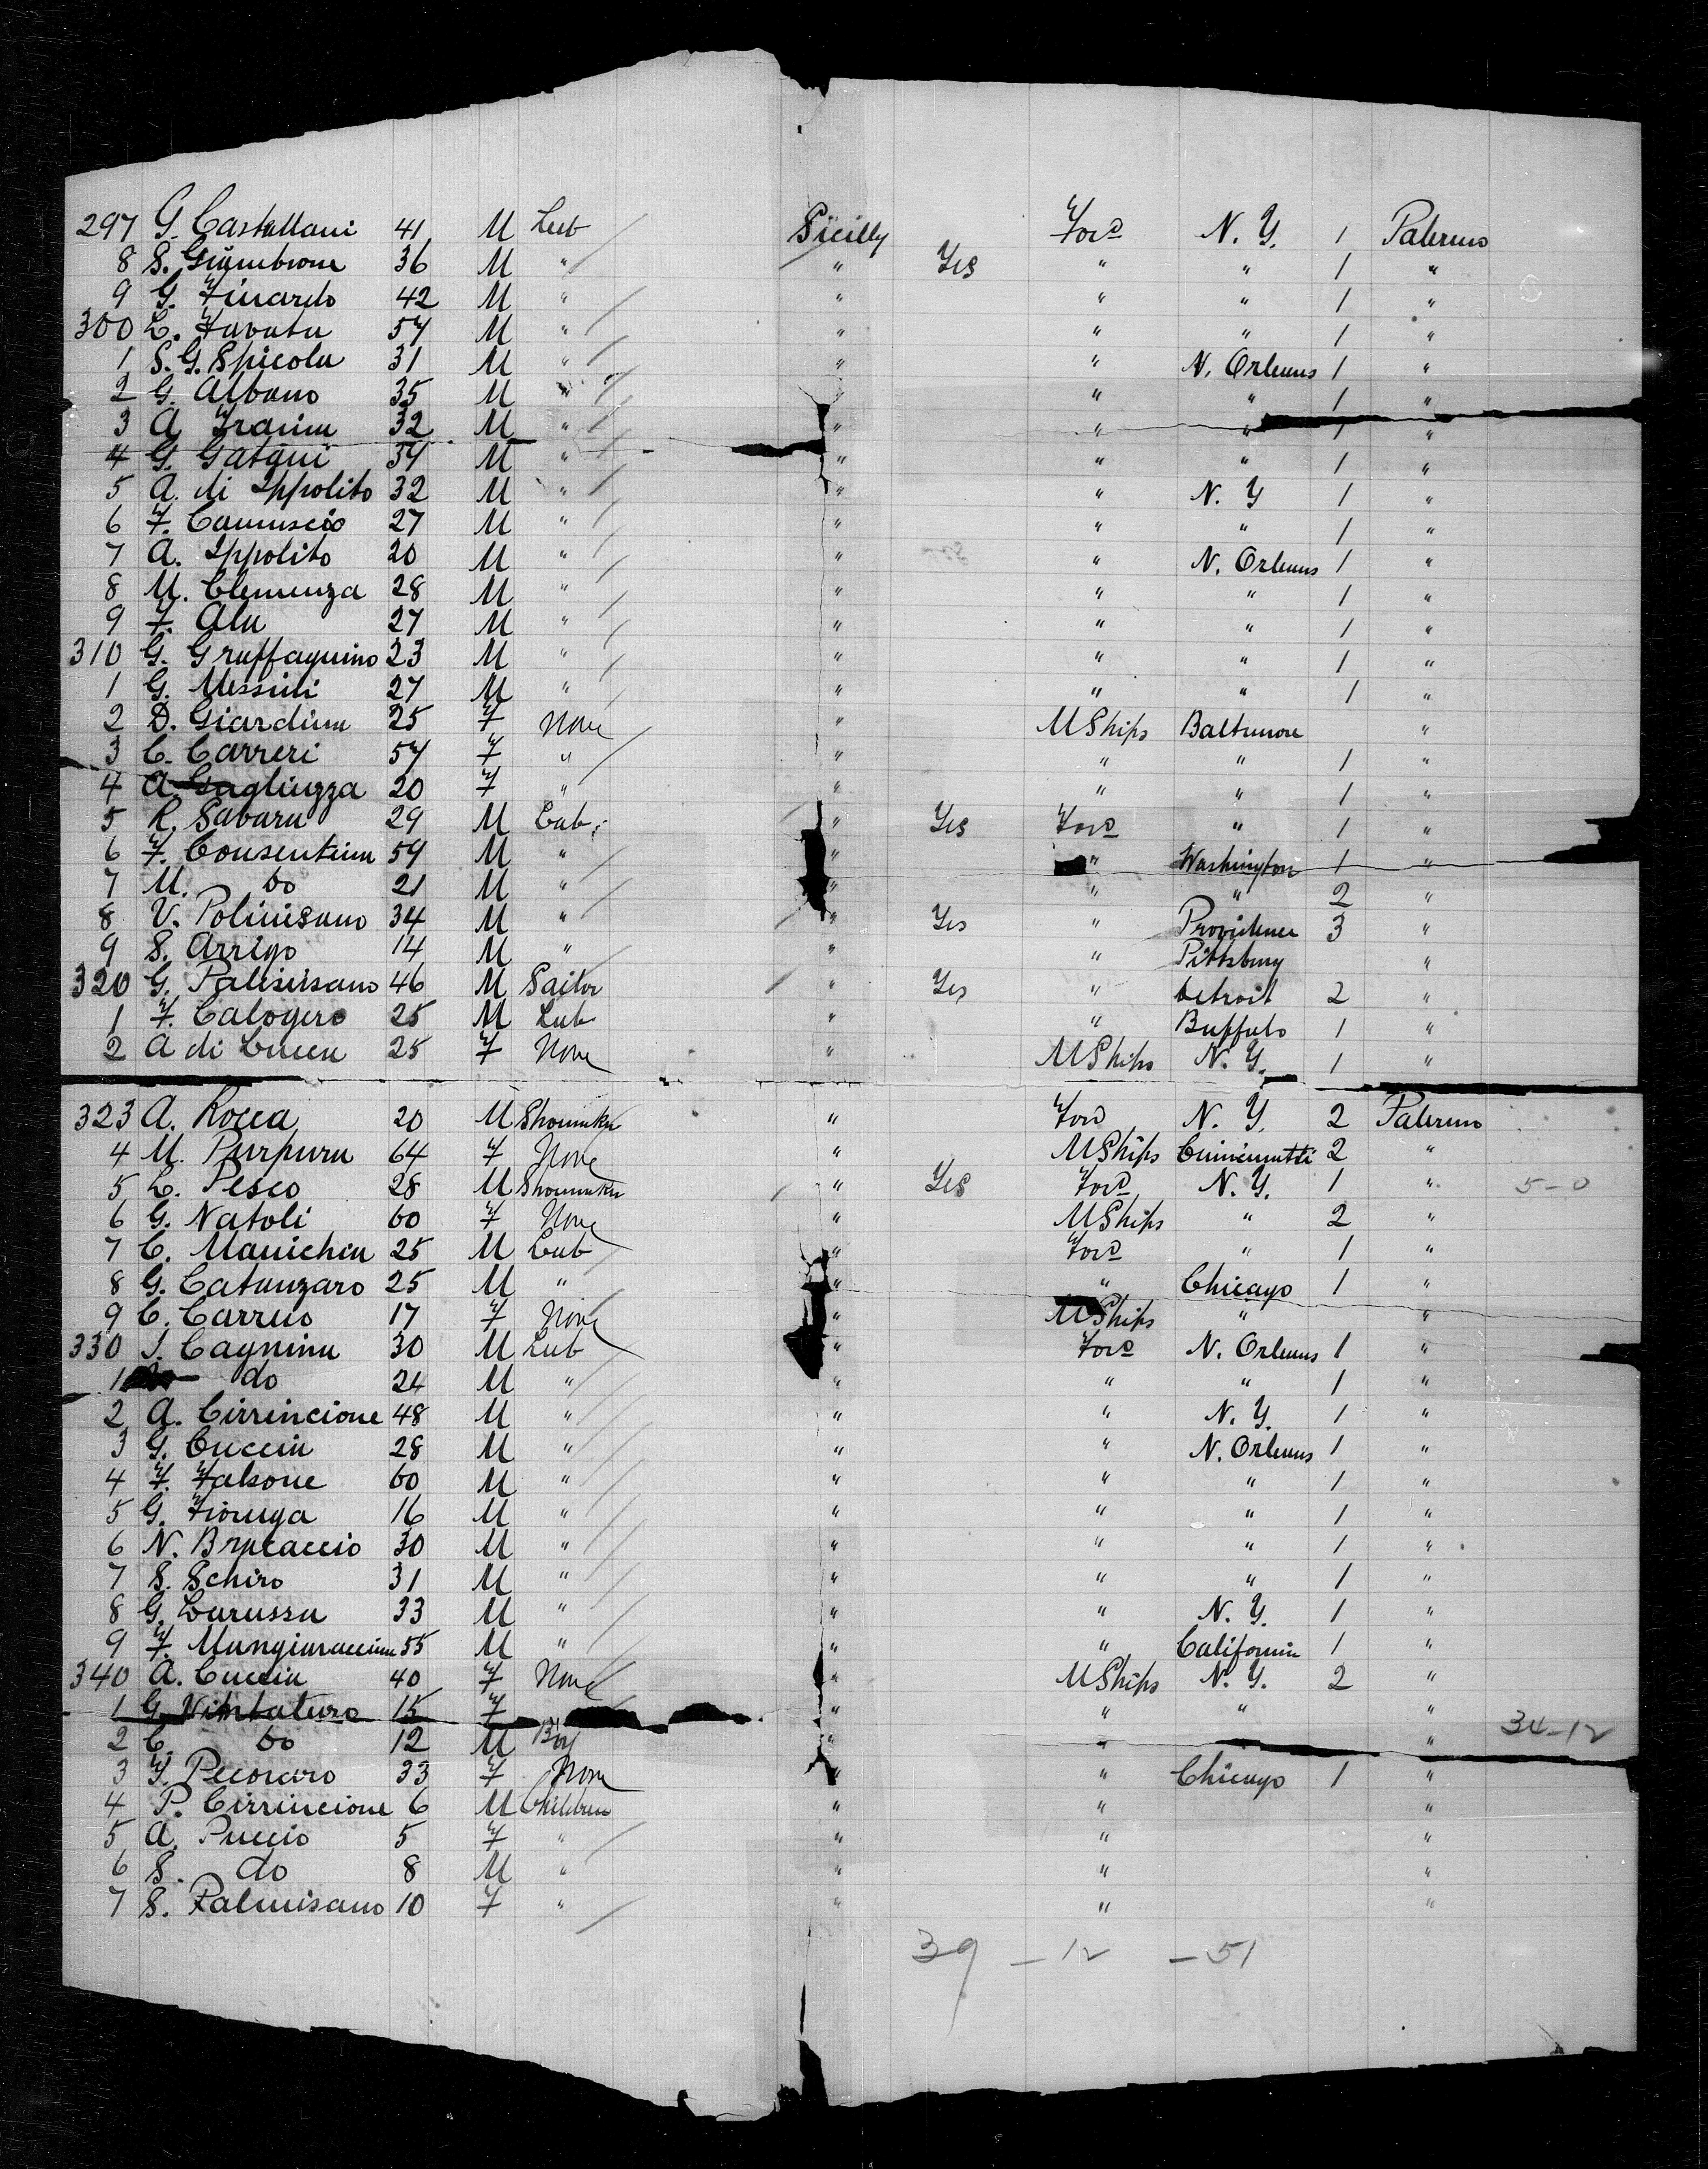 297 G. Castellani 41 M Lab Sicilly Ford N. Y. 1 Palermo
8 S. Giambrone 36 M " " Yes " " 1 "
9 G. Finardo 42 M " " " " 1 "
300 L. Favata 57 M " " " " 1 "
1 S. G. Spicola 31 M " " " N. Orleans 1 "
2 G. Albano 35 M " " " " 1 "
3 A. 32 M " " " " 1 "
4 G. 39 M " " " " 1 "
5 A. di Ippolito 32 M " " " N. Y 1 "
6 F. Camuscio 27 M " " " " 1 "
7 A. Ippolito 20 M " " " N. Orleans 1 "
8 M. Clemenza 28 M " " " " 1 "
9 F. Alu 27 M " " " " 1 "
310 G. Graffagnino 23 M " " " " 1 "
1 G. Messini 27 M " " " " 1 "
2 D. Giardina 25 F None " MShips Baltimore "
3 C. Carreri 57 F " " " " 1 "
4 A. Gagliuzza 20 F " " " " 1 "
5 R. Sabara 29 M Lab. " Yes Ford " 1 "
6 F. Consentina 59 M " " " Washington 1 "
7 M. Do 21 M " " " " 2 "
8 V. Polinisano 34 M " " Yes " Providence 3 "
9 S. Arrigo 14 M " " " Pittsburg "
320 G. Palmisano 46 M Sailor " Yes " Detroit 2 "
1 F. Calogero 25 M Lab " " Buffalo 1 "
2 A di Cucca 25 F None " MShips N. Y. 1 "
323 A. Rocca 20 M Shoemkr " Ford N. Y. 2 Palermo
4 M. Purpura 64 F None " MShips Cincinnatti 2 "
5 L. Pesco 28 M Shoemkr " Yes Ford N. Y. 1 " 5-0
6 G. Natoli 60 F None " MShips " 2 "
7 C. Manichia 25 M Lab " Ford " 1 "
8 G. Catanzaro 25 M " " " Chicago 1 "
9 C. Carreio 17 F None " MShips " "
330 J. Cagnina 30 M Lab " Ford N. Orleans 1 "
1 do 24 M " " " " 1 "
2 A. Cirrincione 48 M " " " N. Y. 1 "
3 G. Cuccia 28 M " " " N. Orleans 1 "
4 F. Falsone 60 M " " " " 1 "
5 G. 16 M " " " " 1 "
6 N. Brucaccio 30 M " " " " 1 "
7 S. Schiro 31 M " " " " 1 "
8 G. Larussa 33 M " " " N. Y. 1 "
9 F. Mangiaraccina 55 M " " " California 1 "
340 A. Cuccia 40 F None " MShips N. Y. 2 "
1 G. Vintaturo 15 F " " "
2 C. Do 12 M Boy " " " " 34-12
3 F. Pecoraro 33 F None " " Chicago 1 "
4 P. Cirrincione 6 M Children " " "
5 A. Puccio 5 F " " " "
6 S. do 8 M " " " "
7 S. Palmisano 10 F " " " "
39 - 12 - 51